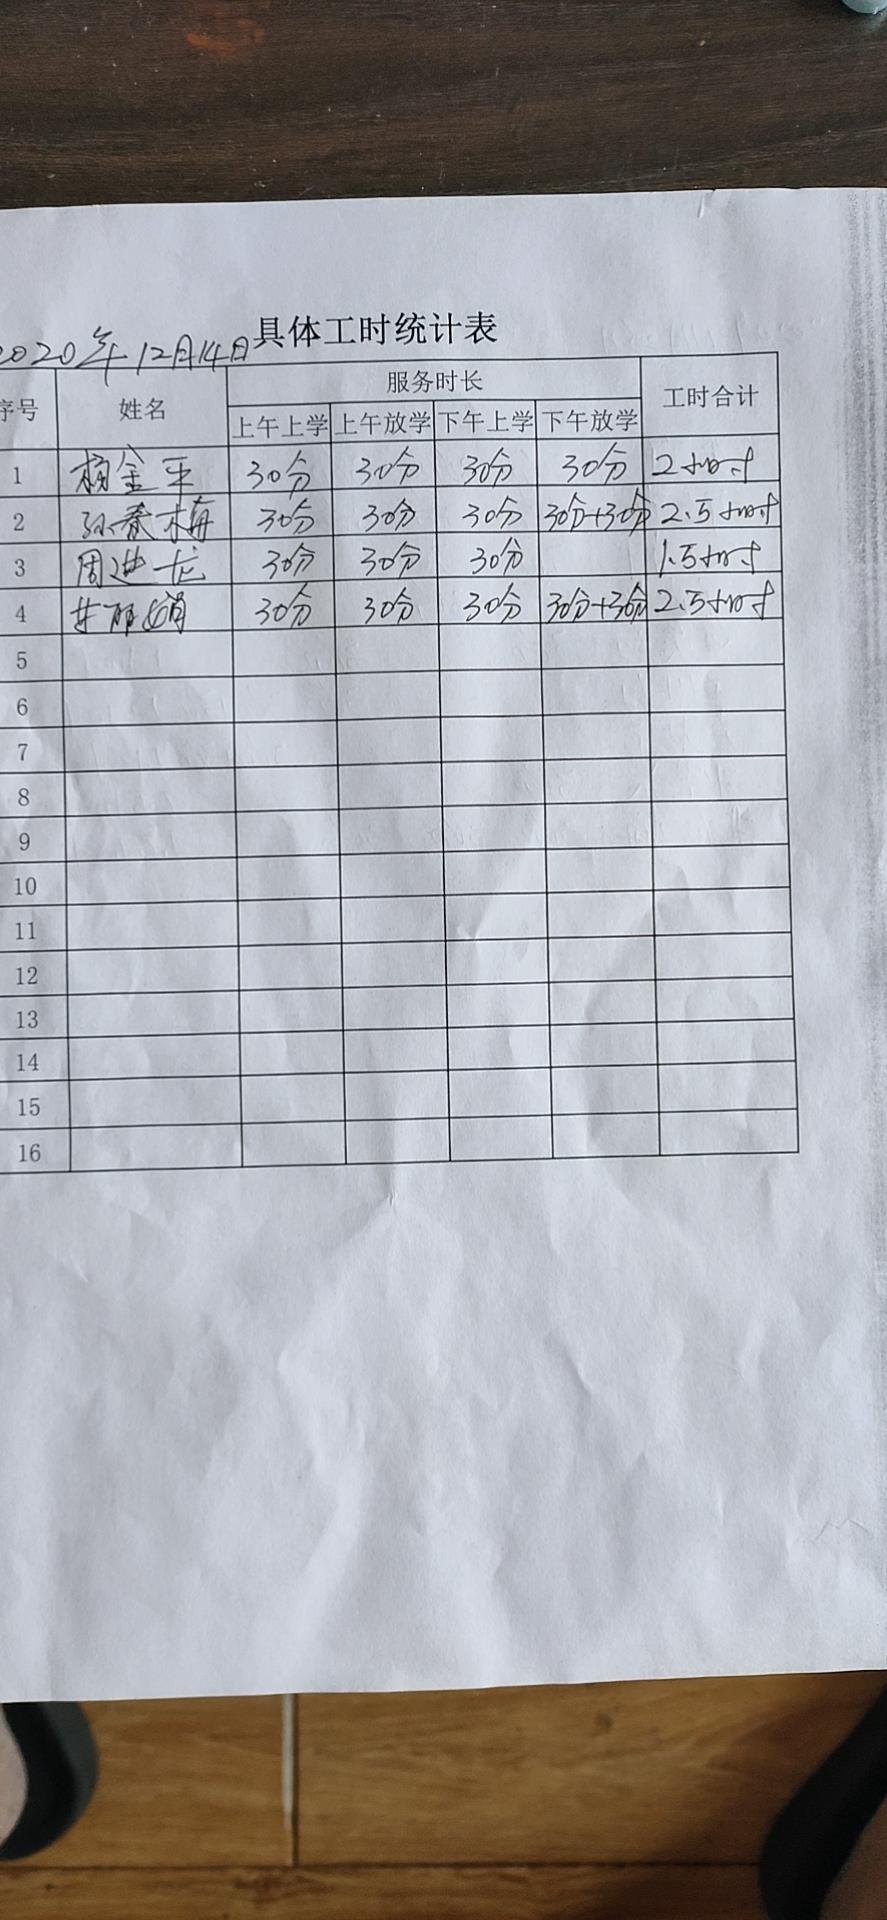 具体工时统计表
2020年12月14日
序号 姓名 服务时长 工时合计
上午上学 上午放学 下午上学 下午放学
1 杨金平 30分 30分 30分 30分 2小时
2 孙春梅 30分 30分 30分 30分+30分 2.5小时
3 周进龙 30分 30分 30分 1.5小时
4 30分 30分 30分 30分+30分 2.5小时
5
6
7
8
9
10
11
12
13
14
15
16